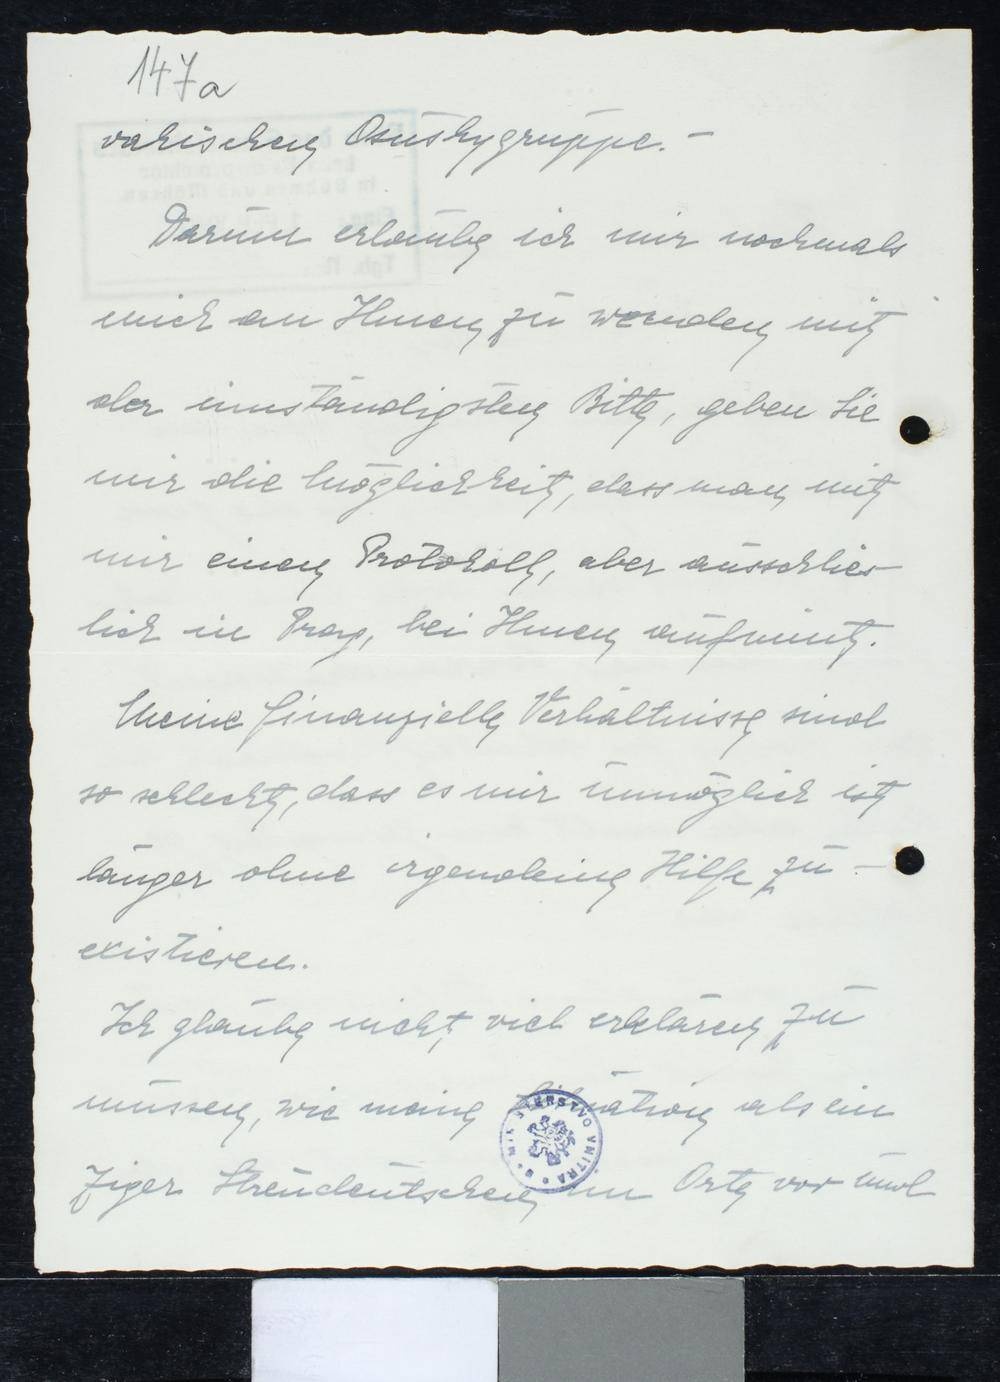 147a
vakischen Osuskygruppe. –
Darum erlaube ich mir nochmals
mich an Ihnen zu wenden mit
der inständigsten Bitte, geben Sie
mir die Möglichkeit, dass man mit
mir einen Protokoll, aber ausschlies
lich in Prag, bei Ihnen aufnimt.
Meine finanzielle Verhältnisse sind
so schlecht, dass es mir unmöglich ist
länger ohne irgendeine Hilfe zu –
existieren.
Ich glaube nicht, viel erklären zu
müssen, wie meine Situation als ein
ziger Streudeutschen im Orte vor und
MINISTERSTVO VNITRA